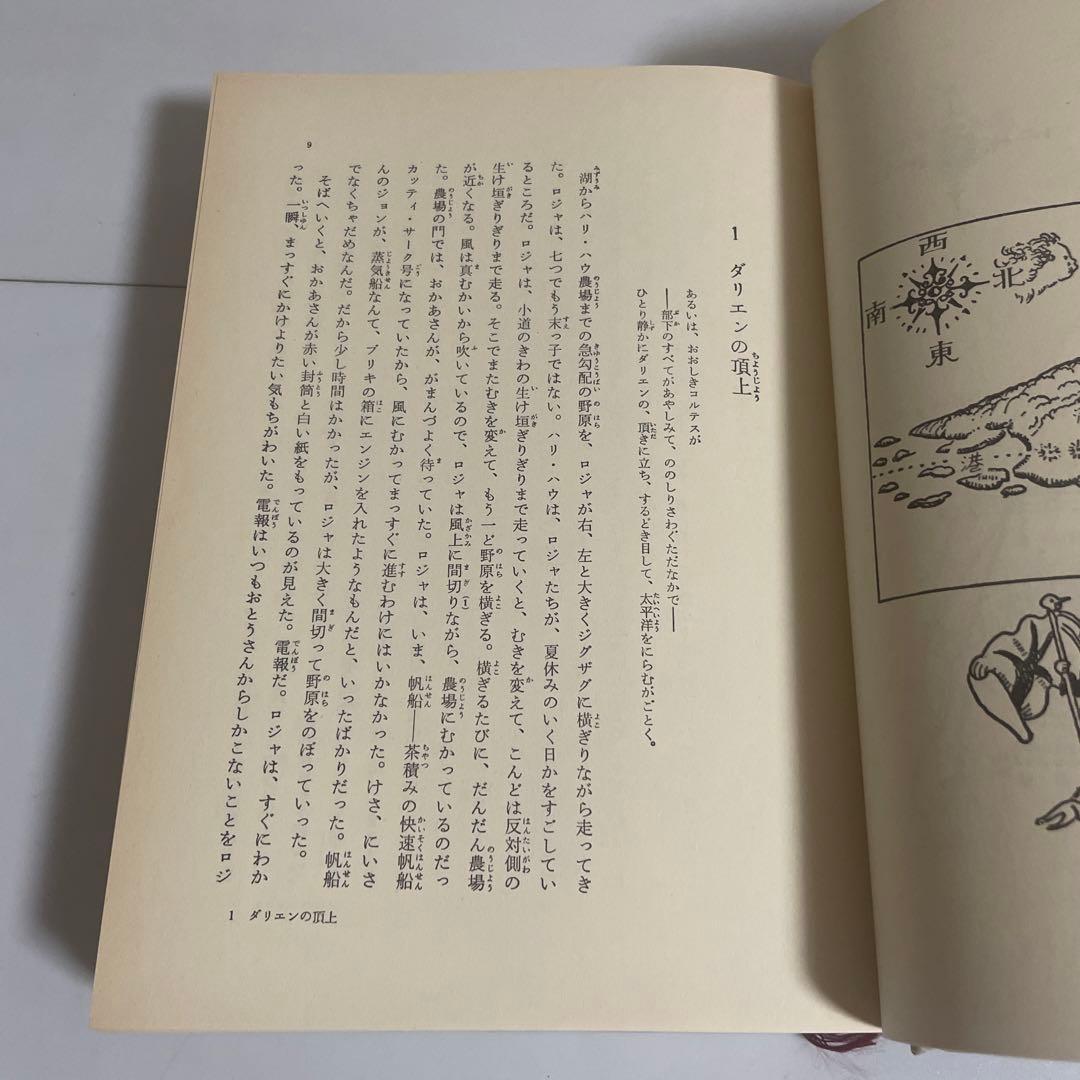 西
北
南
東
港
9
1 ダリエンの頂上
あるいは、おおしきコルテスが
――部下のすべてがあやしみて、ののしりさわぐただなかで――
ひとり静かにダリエンの、頂きに立ち、するどき目して、太平洋をにらむがごとく。
湖からハリ・ハウ農場までの急勾配の野原を、ロジャが右、左と大きくジグザグに横ぎりながら走ってき
た。ロジャは、七つでもう末っ子ではない。ハリ・ハウは、ロジャたちが、夏休みのいく日かをすごしてい
るところだ。ロジャは、小道のきわの生け垣ぎりぎりまで走っていくと、むきを変えて、こんどは反対側の
生け垣ぎりぎりまで走る。そこでまたむきを変えて、もう一ど野原を横ぎる。横ぎるたびに、だんだん農場
が近くなる。風は真むかいから吹いているので、ロジャは風上に間切り(1)ながら、農場にむかっているのだっ
た。農場の門では、おかあさんが、がまんづよく待っていた。ロジャは、いま、帆船――茶積みの快速帆船
カッティ・サーク号になっていたから、風にむかってまっすぐに進むわけにはいかなかった。けさ、にいさ
んのジョンが、蒸気船なんて、ブリキの箱にエンジンを入れたようなもんだと、いったばかりだった。帆船
でなくちゃだめなんだ。だから少し時間はかかったが、ロジャは大きく間切って野原をのぼっていった。
そばへいくと、おかあさんが赤い封筒と白い紙をもっているのが見えた。電報だ。ロジャは、すぐにわか
った。一瞬、まっすぐにかけよりたい気もちがわいた。電報はいつもおとうさんからしかこないことをロジ
1 ダリエンの頂上